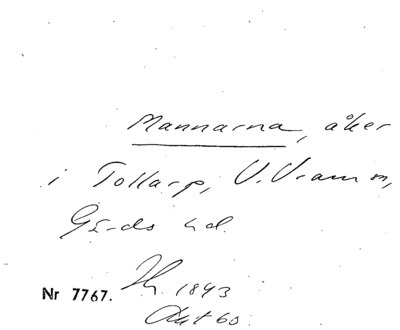 Mannarna, åker
i Tollarp, V. Vram sn,
Gärds hd.
Nr 7767. 1843
Akt 60.